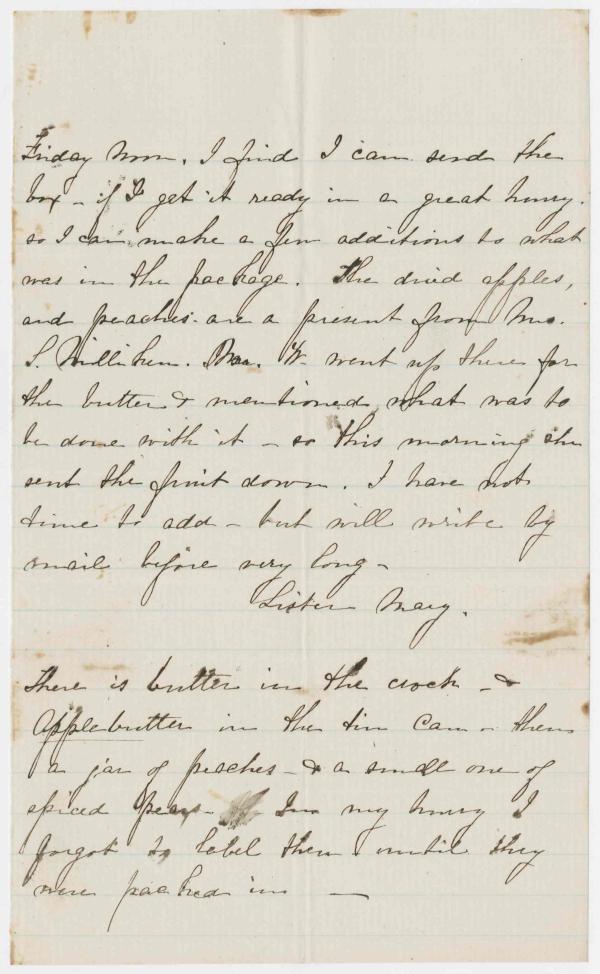 Friday noon. I find I can send the
box - if I get it ready in a great hurry.
so I can make a few additions to what
was in the package. The dried apples,
and peaches - are a present from Mrs.
S. Milliken. W. went up there for
the butter & mentioned what was to
be done with it - so this morning she
sent the fruit down. I have not
time to add - but will write by
mail before very long -
Sister Mary.
There is butter in the crock - &
Applebutter in the tin can - then
a jar of peaches - & a small one of
spiced pears - In my hurry I
forgot to label them until they
were packed in —